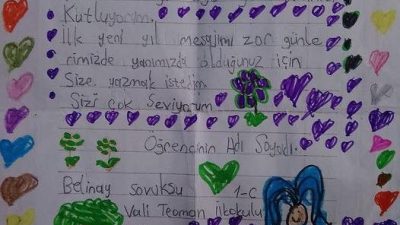 Kutluyorum.
İlk yeni yıl mesajımı zor günle
rimizde yanımızda olduğunuz için
Size yazmak istedim
Sizi çok Seviyorum
Öğrencinin Adı Soyadı:
Belinay Savuksu 1-C
Vali Teoman İlkokulu